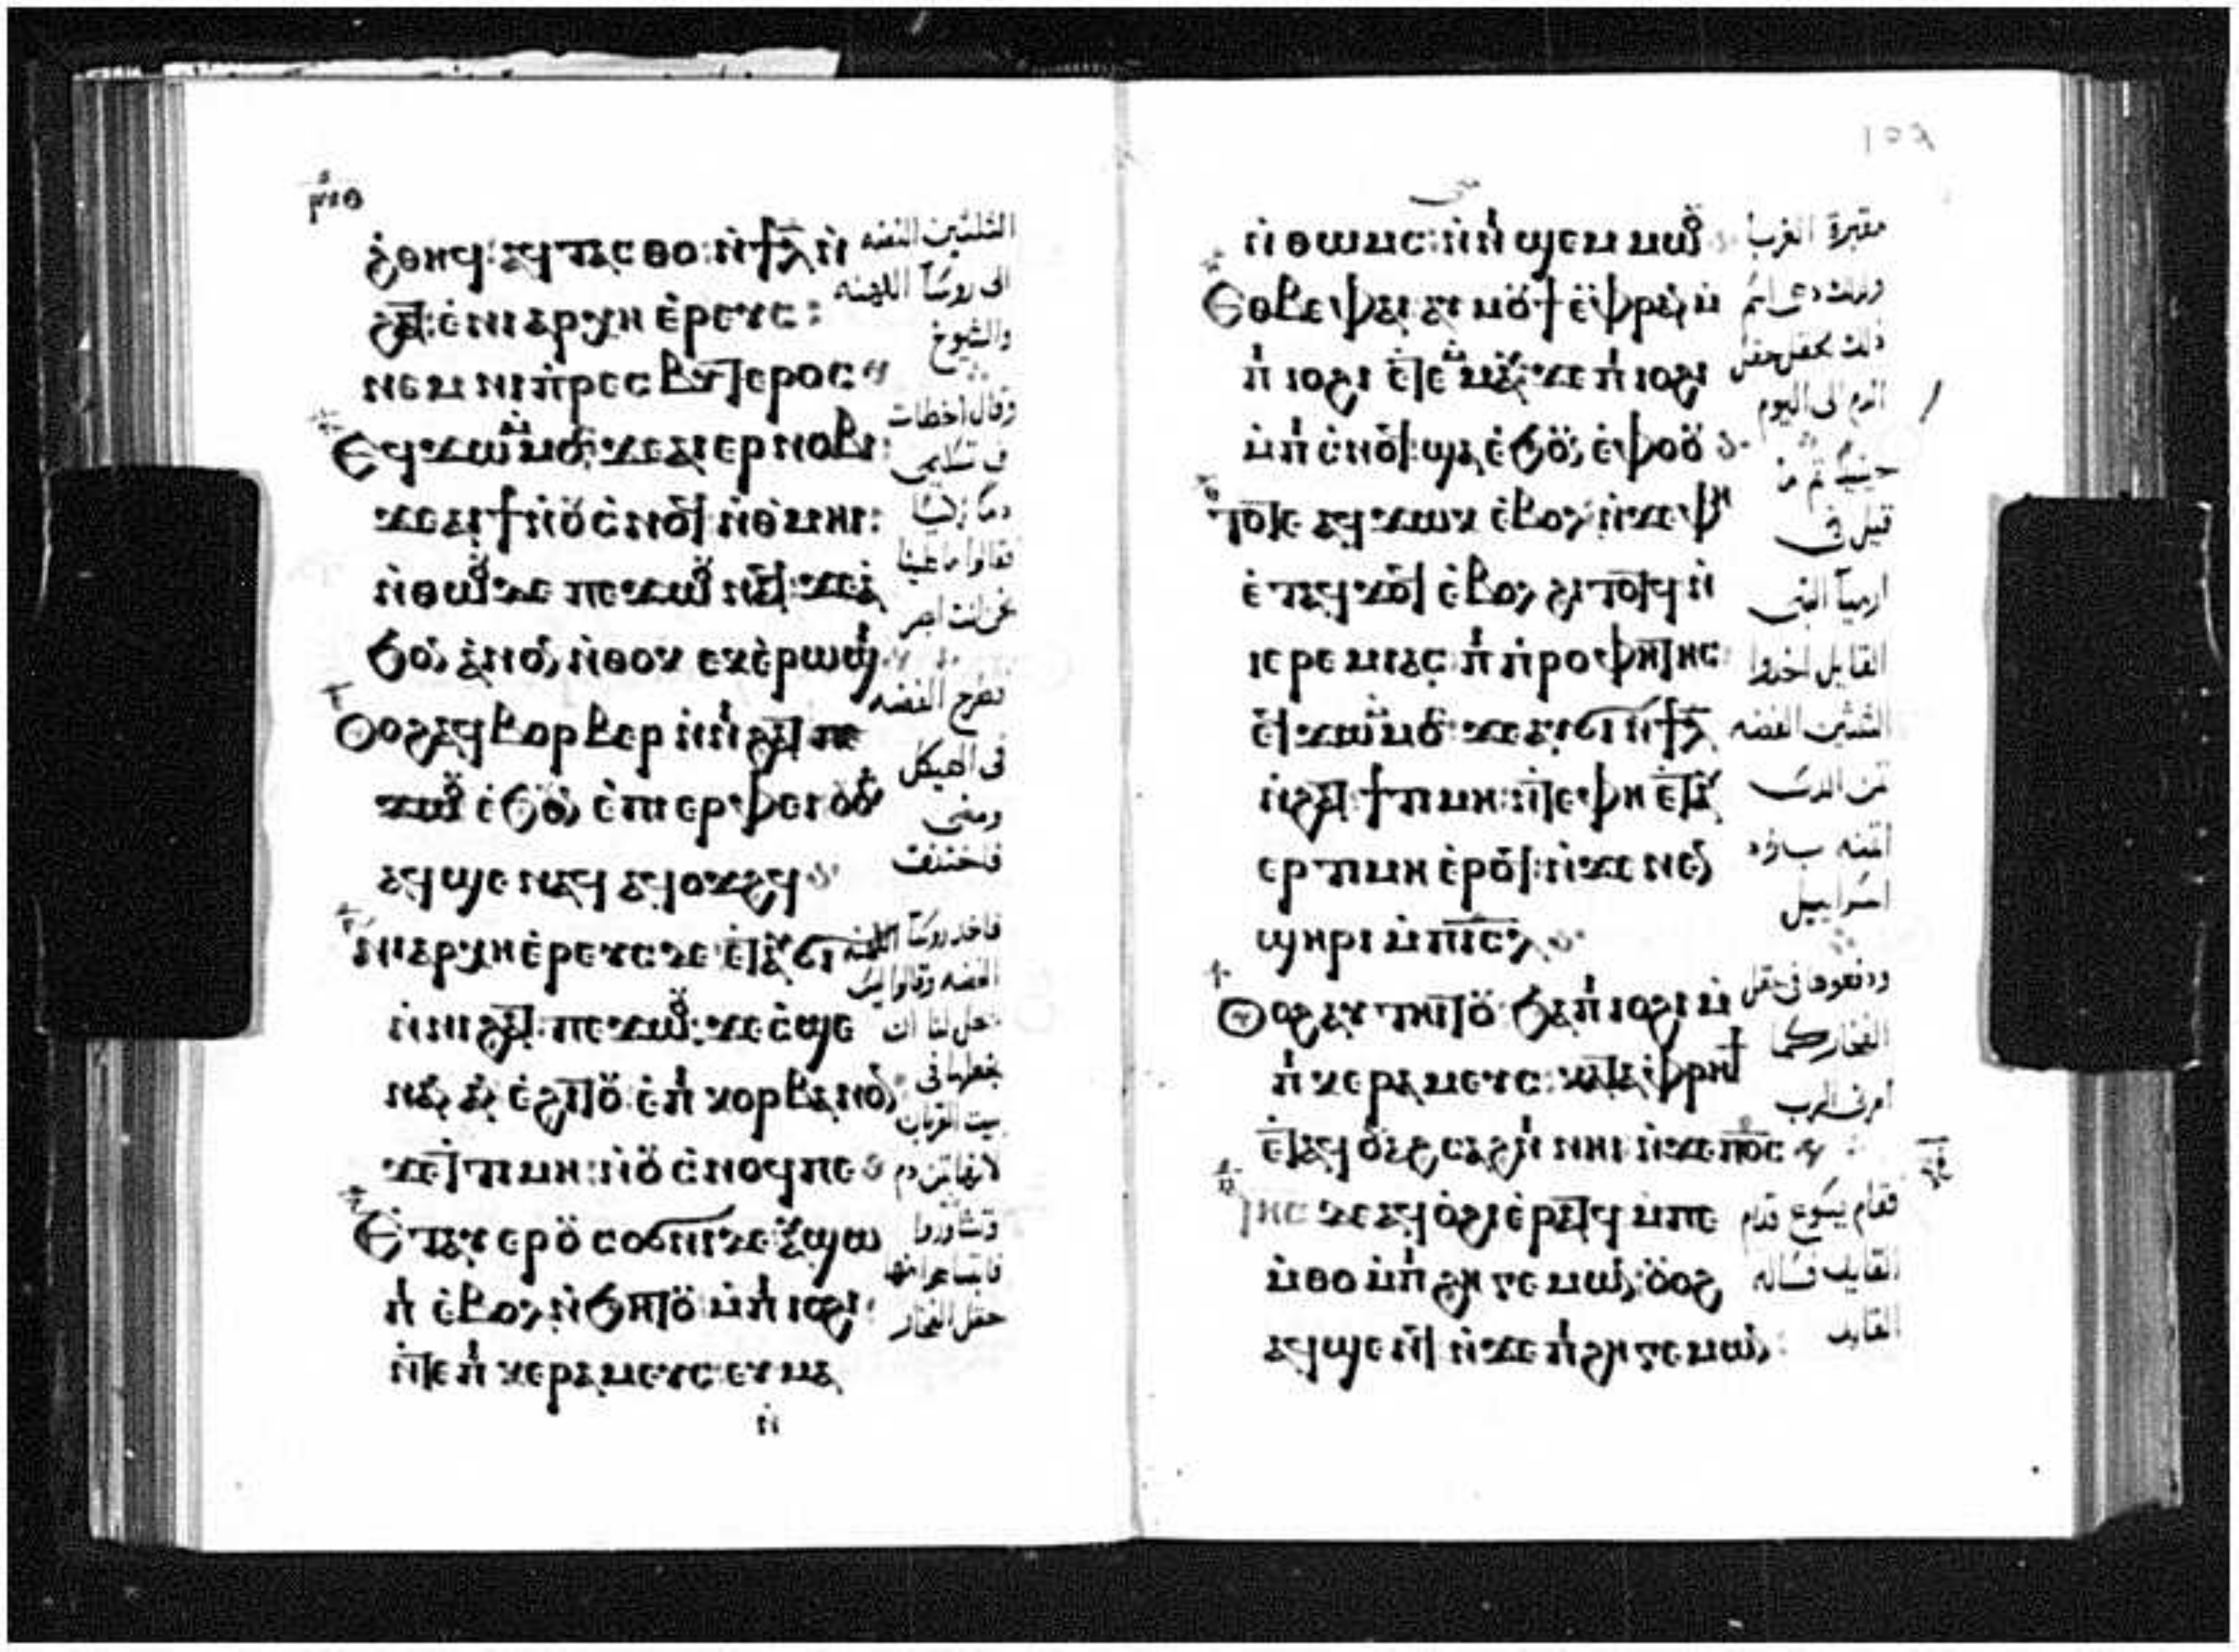 ⲣ̅ⲛ̅ⲑ
ϩ̇ⲑⲏϥ: ⲁϥⲧⲁⲥⲑⲟ: ⲛ̇ϯⲗ̅ ⲛ̇
ϩⲁⲧ: ⲉ̇ⲛⲓⲁⲣⲭⲏ ⲉ̇ⲣⲉⲩⲥ:
ⲛⲉⲙ ⲛⲓⲡ̇ⲣⲉⲥⲃⲩⲧⲉⲣⲟⲥ
Ⲉϥϫⲱ ⲙ̇ⲙⲟⲥ ϫⲉ ⲁⲓⲉⲣⲛⲟⲃⲓ:
ϫⲉ ⲁⲓϯ ⲛ̇ⲟⲩⲥ̇ⲛⲟϥ ⲛ̇ⲑⲙⲏⲓ:
ⲛ̇ⲑⲱⲟⲩ ⲇⲉ ⲡⲉϫⲱⲟⲩ ⲛⲁϥ: ϫⲉ ⲁ
ϧⲟⲛ ⲁ̇ⲛⲟⲛ ⲛ̇ⲑⲟⲕ ⲉⲕⲉ̇ⲣⲱϣⲓ
Ⲟⲟϩ ⲁϥⲃⲟⲣⲃⲉⲣ ⲛ̇ⲛⲓϩⲁⲧ
ⲥⲁϧⲟⲩⲛ ⲉ̇ⲡⲓⲉⲣⲫⲉⲓ ⲟⲩⲟϩ
ⲁϥϣⲉⲛⲁϥ ⲁϥⲟϫϩϥ
Ⲛⲓⲁⲣⲭⲏⲉ̇ⲣⲉⲩⲥ ⲇⲉ ⲉ̇ⲧⲁⲩϭⲓ
ⲛ̇ⲛⲓϩⲁⲧ: ⲡⲉϫⲱⲟⲩ: ϫⲉ ⲥ̇ϣⲉ
ⲛⲁⲛ ⲁⲛ ⲉ̇ϩⲓⲧⲟⲩ ⲉ̇ⲡⲓⲕⲟⲣⲃⲁⲛⲟⲛ
ϫⲉ ⲧⲓⲙⲏ: ⲛ̇ⲟⲩⲥ̇ⲛⲟϥ ⲡⲉ
Ⲉ̇ⲧⲁⲩⲉⲣⲟⲩⲥⲟϭⲛⲓ ⲇⲉ ⲁⲩϣⲱ
ⲡ ⲉ̇ⲃⲟⲗ ⲛ̇ϧⲏⲧⲟⲩ ⲙ̇ⲡⲓⲓⲟϩⲓ:
ⲛ̇ⲧⲉ ⲡⲓⲕⲉⲣⲁⲙⲉⲩⲥ: ⲉⲩⲙⲁ
ⲛ̇
الثلثين الفضه
الى روسآ الكهنه
والشيوخ
وقال اخطات
فى تسليمى
دما زكيا
فقالوا ما علينا
نحن انت ابصر
فطرح الفضه
فى الهيكل
ومضى
فاختنق
فاخذ روسآ الكهنه
الفضه وقالوا ليس
يحل لنا ان
نجعلها فى
بيت القربان
لانها ثمن دم
وتشاوروا
فابتاعوا منها
حقل الفخار
متى
ⲛ̇ⲑⲱⲙⲥ: ⲛ̇ⲛⲓϣⲉⲙⲙⲱⲟⲩ
Ⲉⲑⲃⲉⲫⲁⲓ ⲁⲩⲙⲟⲩϯ ⲉ̇ⲫⲣⲁⲛ ⲙ̇
ⲡⲓⲓⲟϩⲓ ⲉ̇ⲧⲉⲙⲙⲁⲩ: ϫⲉ ⲡⲓⲓⲟϩⲓ
ⲙ̇ⲡⲓⲥ̇ⲛⲟϥ: ϣⲁ ⲉ̇ϧⲟⲩⲛ ⲉ̇ⲫⲟⲟⲩ
Ⲧⲟⲧⲉ ⲁϥϫⲱⲕ ⲉ̇ⲃⲟⲗ ⲛ̇ϫⲉ ⲫⲏ
ⲉ̇ⲧⲁϥϫⲟϥ ⲉ̇ⲃⲟⲗ ϩⲓⲧⲟⲧϥ ⲛ̇
ⲓⲉⲣⲉⲙⲓⲁⲥ: ⲡⲓⲡ̇ⲣⲟⲫⲏⲧⲏⲥ
ⲉϥϫⲱ ⲙ̇ⲙⲟⲥ ϫⲉ ⲁⲩϭⲓ ⲛ̇ϯⲗ̅
ⲛ̇ϩⲁⲧ: ϯⲧⲓⲙⲏ: ⲛ̇ⲧⲉ ⲫⲏ ⲉ̇ⲧⲁⲩ
ⲉⲣⲧⲓⲙⲏ ⲉ̇ⲣⲟϥ: ⲛ̇ϫⲉ ⲛⲉⲛ
ϣⲏⲣⲓ ⲙ̇ⲡⲓⲥ̅ⲗ̅
Ⲟⲟϩ ⲁⲩⲧⲏⲓⲧⲟⲩ ϧⲁ ⲡⲓⲓⲟϩⲓ ⲙ̇
ⲡⲓⲕⲉⲣⲁⲙⲉⲩⲥ: ⲕⲁⲧⲁⲫⲣⲏϯ
ⲉ̇ⲧⲁϥⲟⲩⲁϩⲥⲁϩⲛⲓ ⲛⲏⲓ ⲛ̇ϫⲉ ⲡⲟ̅ⲥ̅
Ⲓⲏⲥ ⲇⲉ ⲁϥⲟ̇ϩⲓ ⲉ̇ⲣⲁⲧϥ ⲙ̇ⲡⲉ
ⲙ̇ⲑⲟ ⲙ̇ⲡⲓϩⲏⲅⲉⲙⲱⲛ: ⲟⲩⲟϩ
ⲁϥϣⲉⲛϥ ⲛ̇ϫⲉ ⲡⲓϩⲏⲅⲉⲙⲱⲛ:
مقبرة الغربا
ولذلك دعى اسم
ذلك الحقل حقل
الدم الى اليوم
حينيذ تم ما
قيل فى
ارميا النبى
القايل اخذوا
الثلثين الفضه
ثمن الذى
اسراييل
ودفعوها فى حقل
الفخار كما
امرنى الرب
فقام يسوع قدام
القايد فساله
القايد